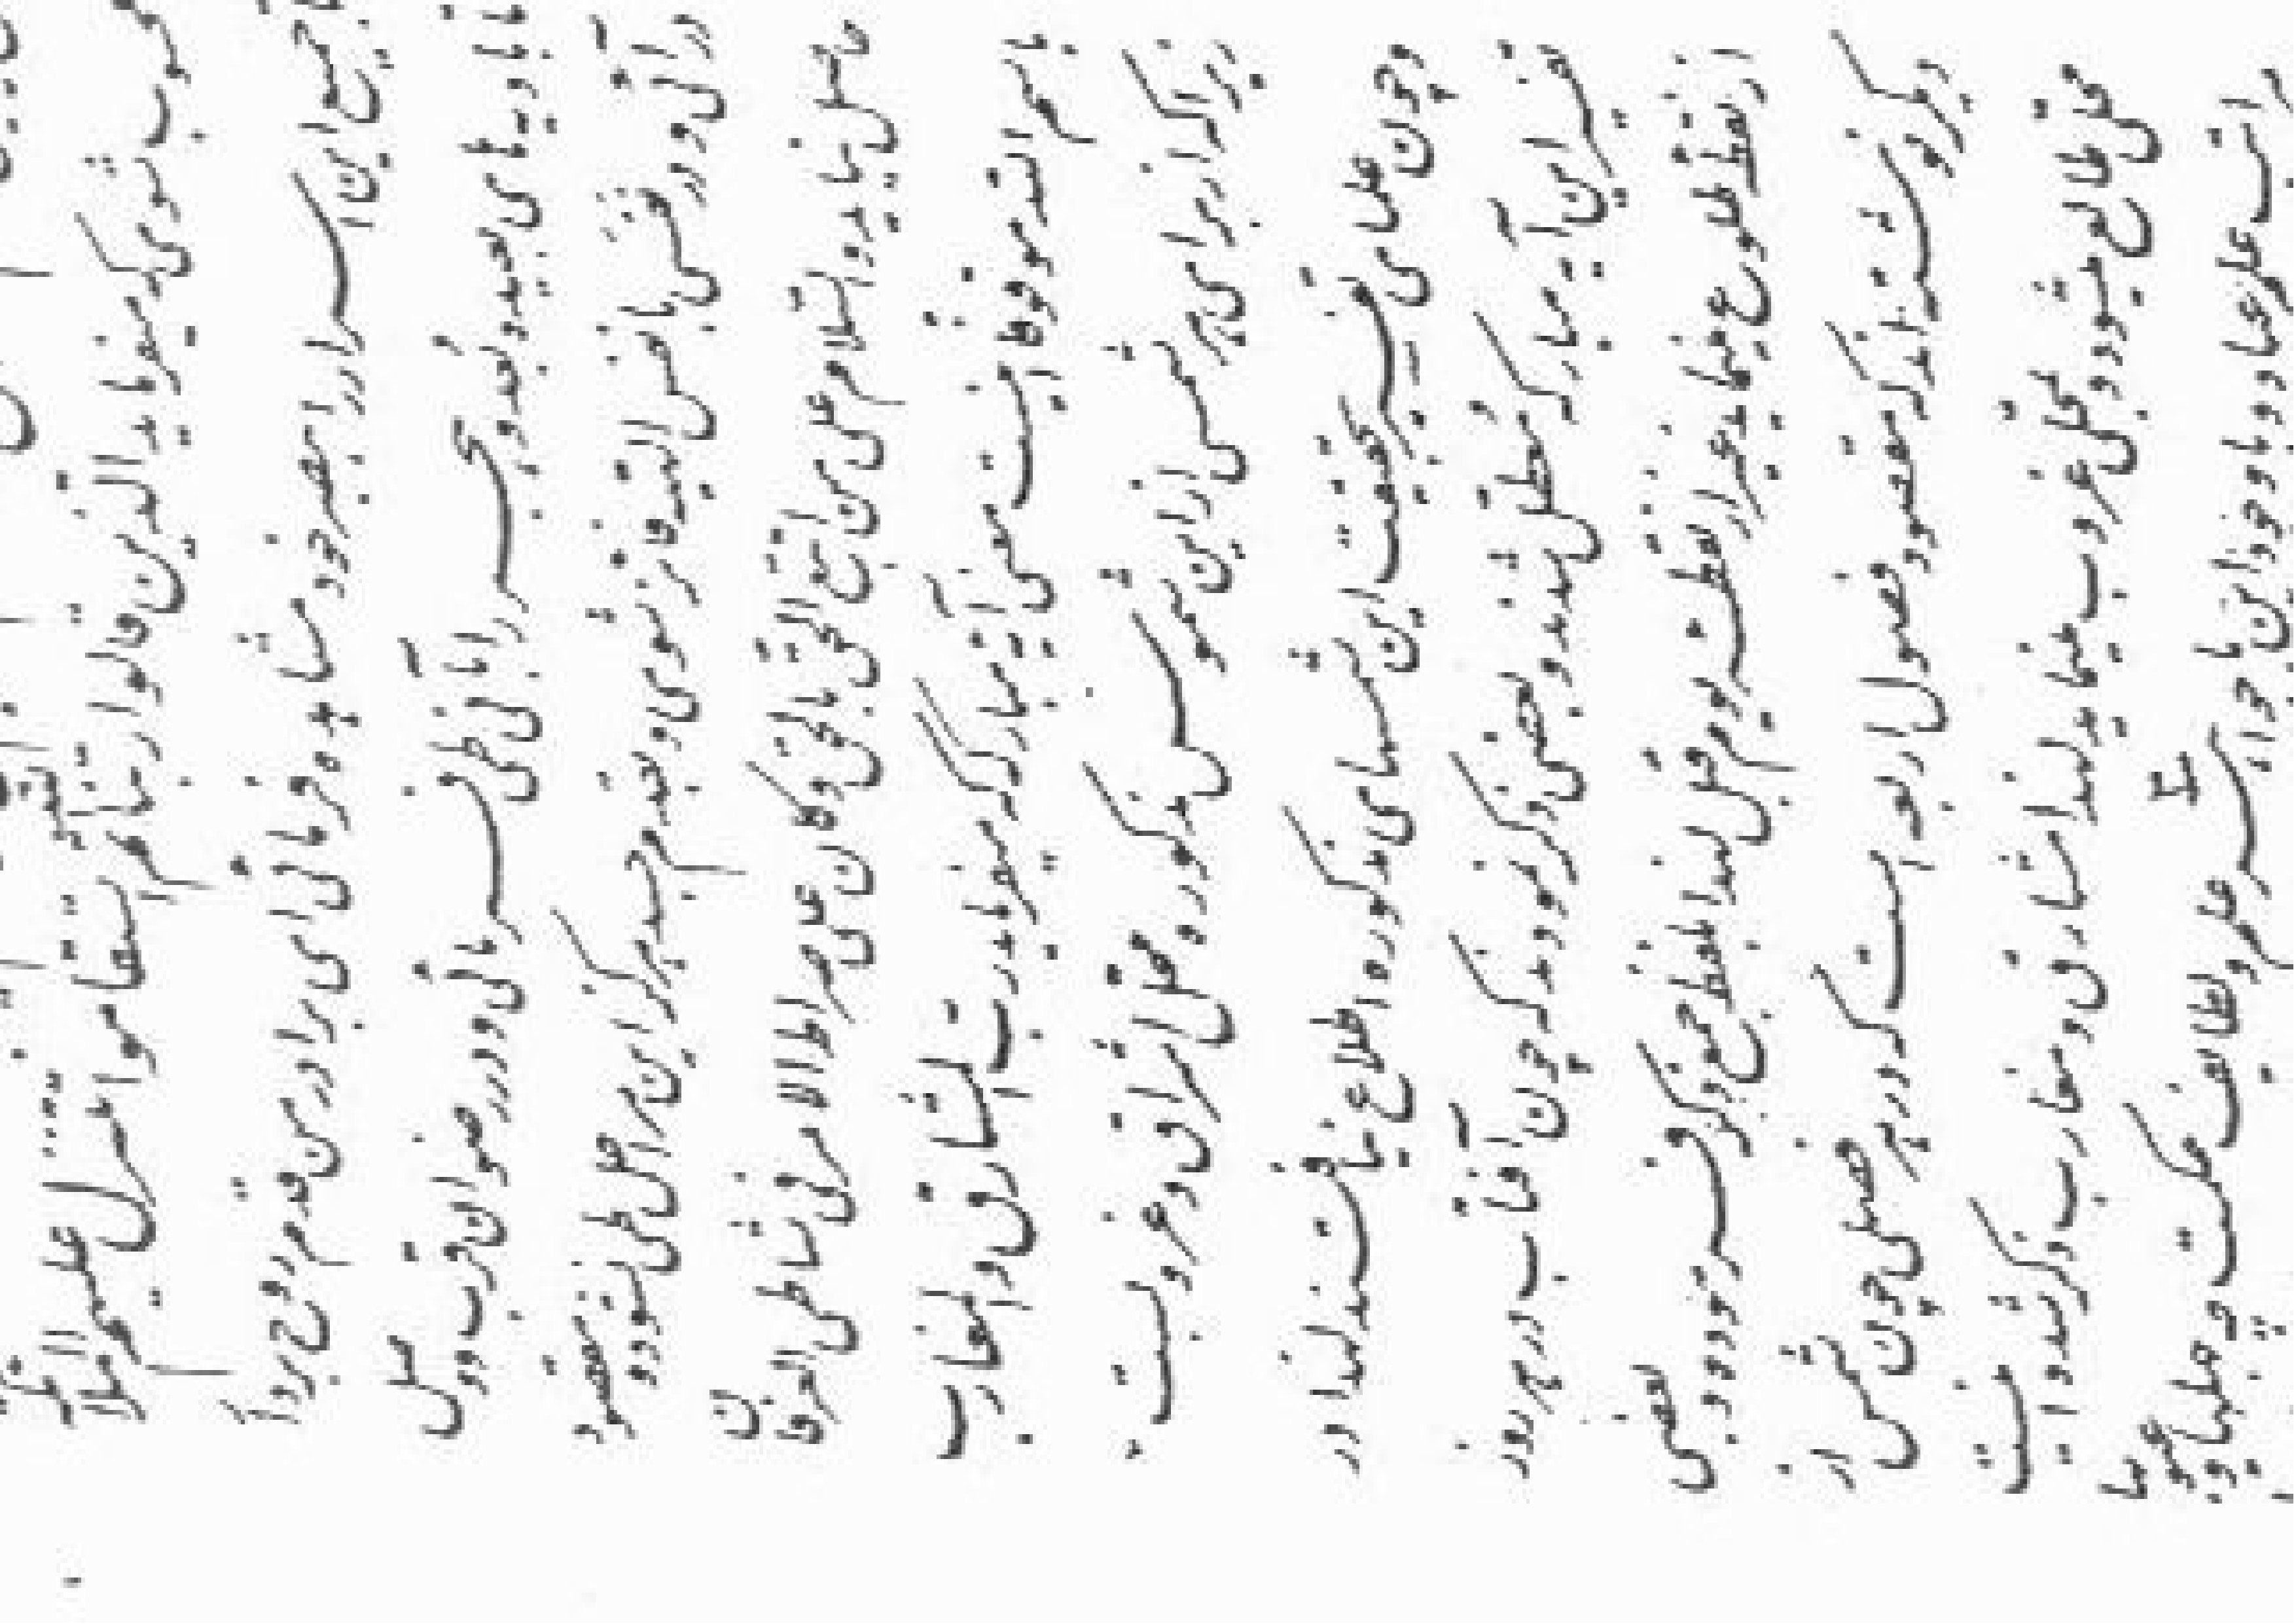 محسوب شوی که میفرماید الّذین قالوا ربّنا اللّه ثمّ استقاموا تتنزّل علیهم الملائکة
تا جمیع این اسرار را ببصر خود مشاهده فرمائی ای برادر من قدم روح بردار
تا بادیه‌های بعیده بعد و هجر را بآنی طی فرمائی و در رضوان قرب و وصل
درآئی و در نفسی بانفس الهیّه فائز شوی و بقدم جسد هرگز این مراحل طی نشود و مقصود
حاصل نیاید و السّلام علی من اتّبع الحقّ بالحقّ و کان علی صراط الامر فی شاطی العرفان
باسم اللّه موقوفا اینست معنی آیه مبارکه که میفرماید ربّ المشارق و المغارب
زیرا که از برای هر شمسی از این شموس مذکوره محلّ اشراق و غروبست
و چون علمای تفسیر بر حقیقت این شمسهای مذکوره اطّلاع نیافتند لهذا در
تفسیر این آیه مبارکه معطّل شدند و بعضی ذکر نمودند که چون آفتاب در هر روز
از نقطه طلوع مینماید غیر از نقطه یوم قبل لهذا بلفظ جمع ذکر فرموده و بعضی
دیگر نوشته‌اند که مقصود فصول اربعه است که در هر فصلی چون شمس از
محلّی طالع میشود و بمحلّی غروب مینماید لهذا مشارق و مغارب ذکر شده و اینست
مراتب علم عباد و با وجود این بجواهر علم و لطایف حکمت چه جهلها و عیبها